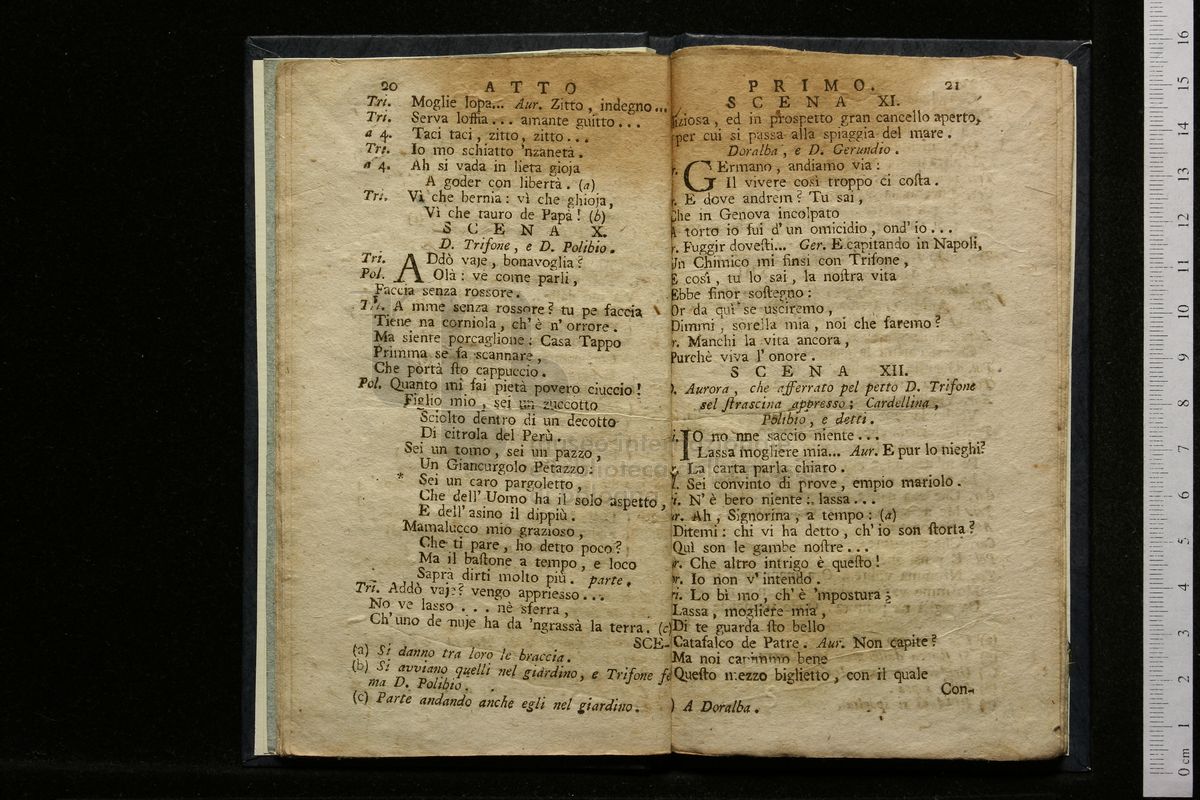 20 ATTO
Tri. Moglie lopa... Aur. Zitto, indegno...
Tri. Serva loffia... amante guitto...
a 4. Taci taci, zitto, zitto...
Tri. Io mo schiatto 'nzanetà.
a 4. Ah si vada in lieta gioja
A goder con libertà. (a)
Tri. Vì che bernia: vì che ghioja,
Vì che tauro de Papà! (b)
SCENA X.
D. Trifone, e D. Polibio.
Tri. ADdò vaje, bonavoglia?
Pol. Olà: ve come parli,
Faccia senza rossore.
Tri. A mme senza rossore? tu pe faccia
Tiene na corniola, ch'è n'orrore.
Ma siente porcaglione: Casa Tappo
Primma se fa scannare,
Che portà sto cappuccio.
Pol. Quanto mi fai pietà povero ciuccio!
Figlio mio, sei un zuccotto
Sciolto dentro di un decotto
Di citrola del Perù.
Sei un tomo, sei un pazzo,
Un Giancurgolo Petazzo:
Sei un caro pargoletto,
Che dell'Uomo ha il solo aspetto,
E dell'asino il dippiù.
Mamalucco mio grazioso,
Che ti pare, ho detto poco?
Ma il bastone a tempo, e loco
Saprà dirti molto più. parte.
Tri. Addò vaje? vengo appriesso...
No ve lasso... nè sferra,
Ch'uno de nuje ha da 'ngrassà la terra. (c)
SCE-
(a) Si danno tra loro le braccia.
(b) Si avviano quelli nel giardino, e Trifone fe
ma D. Polibio.
(c) Parte andando anche egli nel giardino.
PRIMO. 21
SCENA XI.
iziosa, ed in prospetto gran cancello aperto,
per cui si passa alla spiaggia del mare.
Doralba, e D. Gerundio.
r. GErmano, andiamo via:
Il vivere così troppo ci costa.
r. E dove andrem? Tu sai,
Che in Genova incolpato
A torto io fui d'un omicidio, ond'io...
r. Fuggir dovesti... Ger. E capitando in Napoli,
Un Chimico mi finsi con Trifone,
E così, tu lo sai, la nostra vita
Ebbe finor sostegno:
Or da quì se usciremo,
Dimmi, sorella mia, noi che faremo?
r. Manchi la vita ancora,
Purchè viva l'onore.
SCENA XII.
D. Aurora, che afferrato pel petto D. Trifone
sel strascina appresso; Cardellina,
Polibio, e detti.
i. IO no nne saccio niente...
Lassa mogliere mia... Aur. E pur lo nieghi?
r. La carta parla chiaro.
l. Sei convinto di prove, empio mariolo.
ri. N'è bero niente: lassa...
ur. Ah, Signorina, a tempo: (a)
Ditemi: chi vi ha detto, ch'io son storta?
Quì son le gambe nostre...
r. Che altro intrigo è questo!
or. Io non v'intendo.
ri. Lo bì mo, ch'è 'mpostura;
Lassa, mogliere mia,
Di te guarda sto bello
Catafalco de Patre. Aur. Non capite?
Ma noi carimmo bene
Questo mezzo biglietto, con il quale
Con-
) A Doralba.